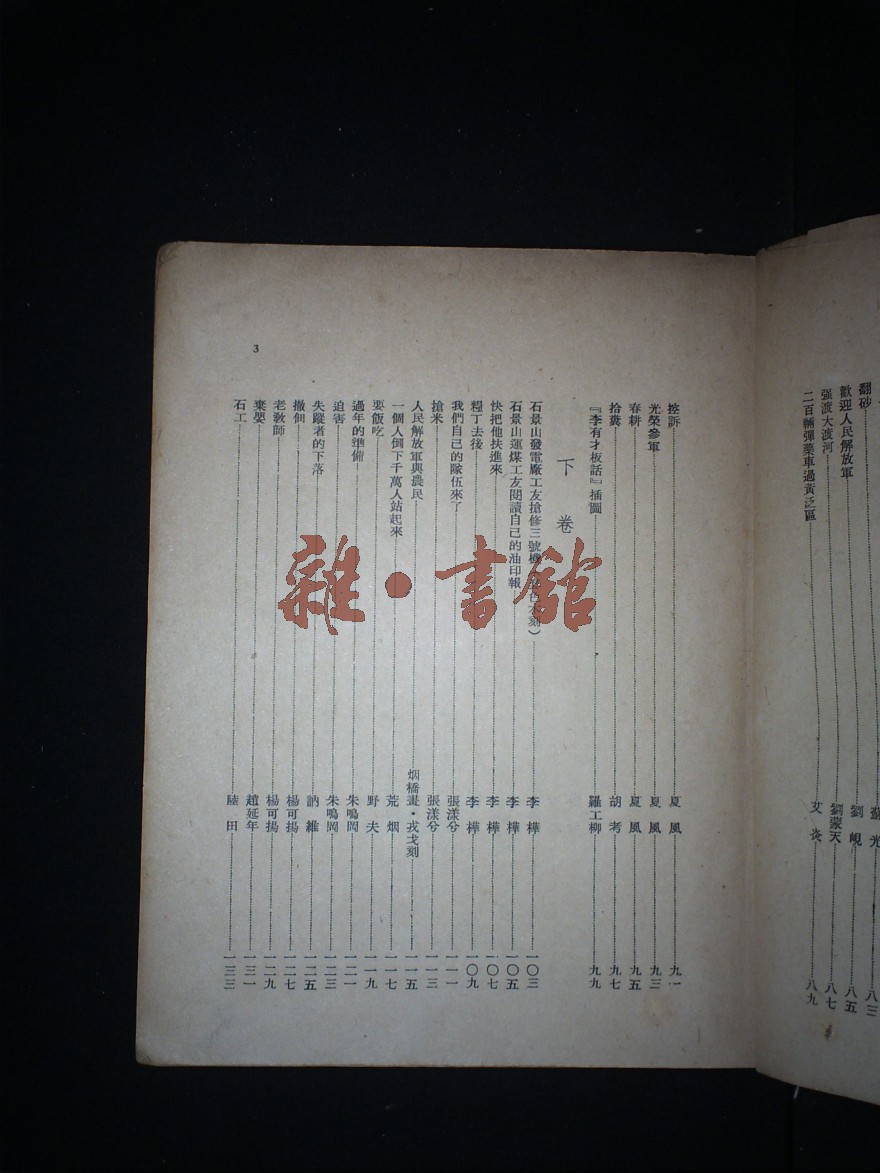 翻砂 蘇光 八三
歡迎人民解放軍 劉峴 八五
强渡大渡河 劉蒙天 八七
二百輛彈藥車過黃泛區 艾炎 八九
控訴 夏風 九一
光榮參軍 夏風 九三
春耕 夏風 九五
拾糞 胡考 九七
『李有才板話』插圖 羅工柳 九九
下卷
石景山發電廠工友搶修三號機 木刻） 李樺 一〇三
石景山運煤工友閱讀自己的油印報 李樺 一〇五
快把他扶進來 李樺 一〇七
糧丁去後 李樺 一〇九
我們自己的隊伍來了 張漾兮 一一一
搶米 張漾兮 一一三
人民解放軍與農民 烟橋畫·戎戈刻 一一五
一個人倒下千萬人站起來 荒烟 一一七
要飯吃 野夫 一一九
過年的準備 朱鳴岡 一二一
迫害 朱鳴岡 一二三
失蹤者的下落 訥維 一二五
撤佃 楊可揚 一二七
老敎師 楊可揚 一二九
棄嬰 趙延年 一三一
石工 陸田 一三三
3
雜·書館